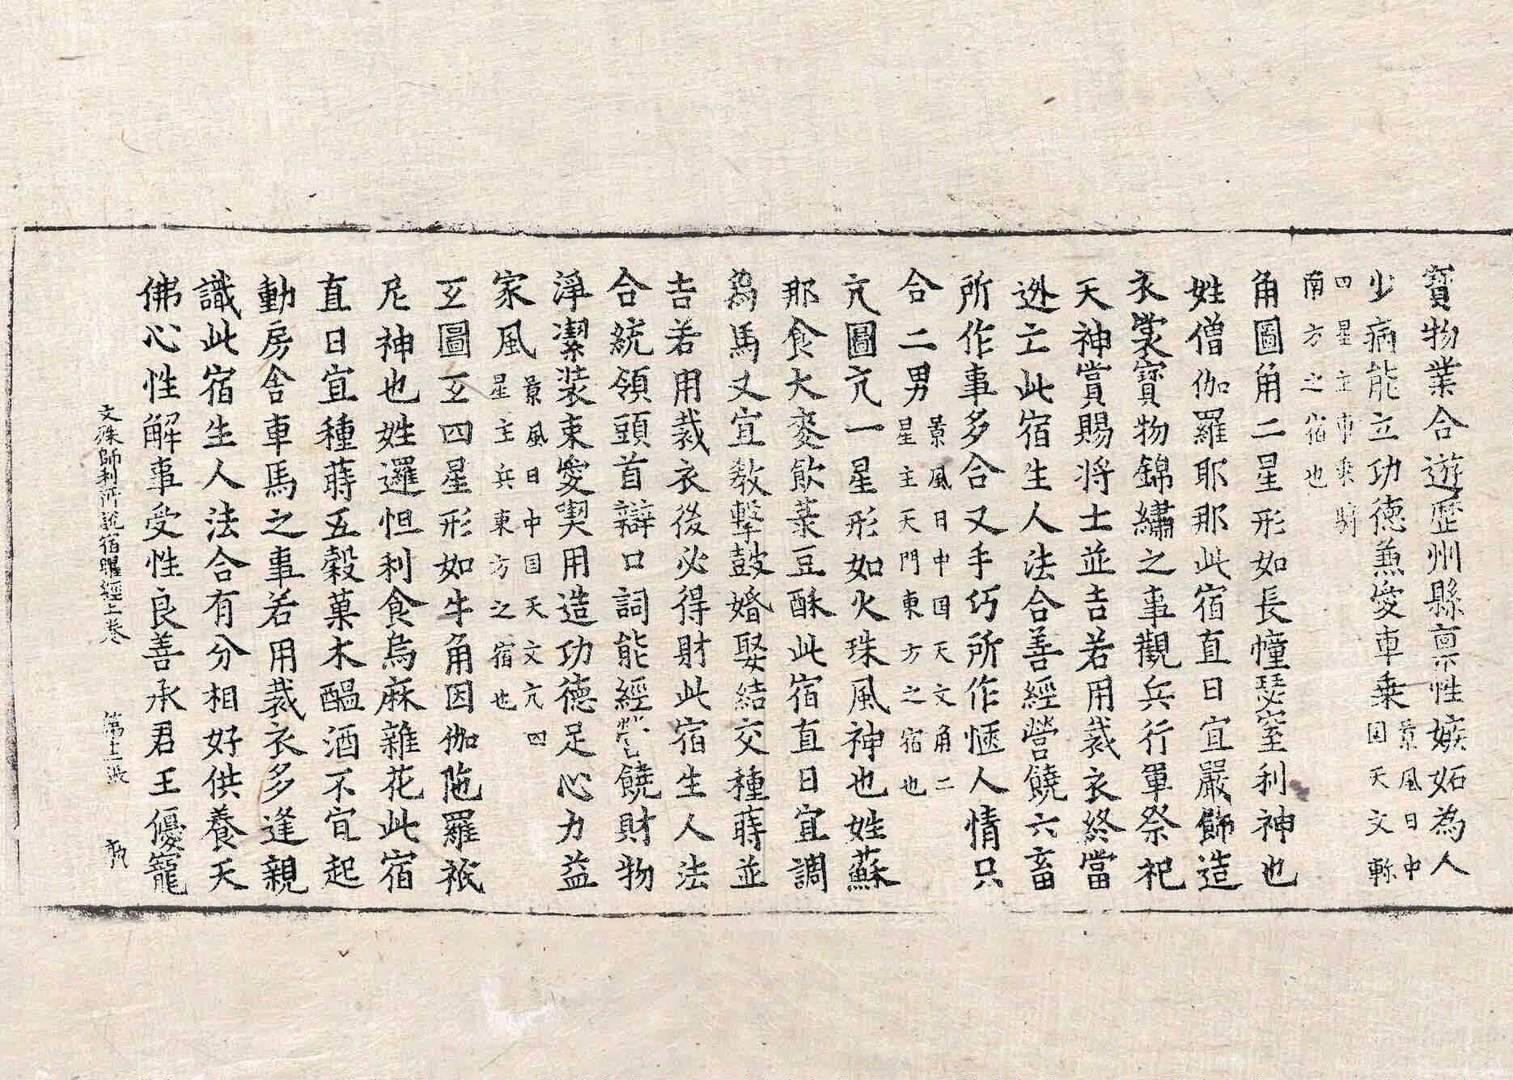 寳物業合遊歷州縣禀性嫉妬為人
少病能立功德兼愛車乗景風曰中国天文軫
四星主車乘騎南方之宿也
角圖角二星形如長幢瑟室利神也
姓僧伽羅耶那此宿直日宜嚴飾造
衣裳寳物錦繡之事觀兵行軍祭祀
天神賞賜將士並吉若用裁衣終當
迯亡此宿生人法合善經營饒六畜
所作事多合又手巧所作愜人情只
合二男景風日中国天文角二星主天門東方之宿也
亢圖亢一星形如火珠風神也姓蘇
那食大麥飲菉豆酥此宿直日宜調
為馬又宜教擊鼓婚娶結交種蒔並
吉若用裁衣後必得財此宿生人法
合統領頭首辯口詞能經營饒財物
淨潔装束愛喫用造功德足心力益
家風景風日中国天文亢四星主兵東方之宿也
互圖互四星形如牛角因伽陁羅祇
尼神也姓邏怛利食烏麻雜花此宿
直日宜種蒔五穀菓木醖酒不冝起
動房舎車馬之事若用裁衣多逢親
識此宿生人法合有分相好供養天
佛心性解事受性良善承君王優寵
文殊師利所説宿曜經上卷 第十二張